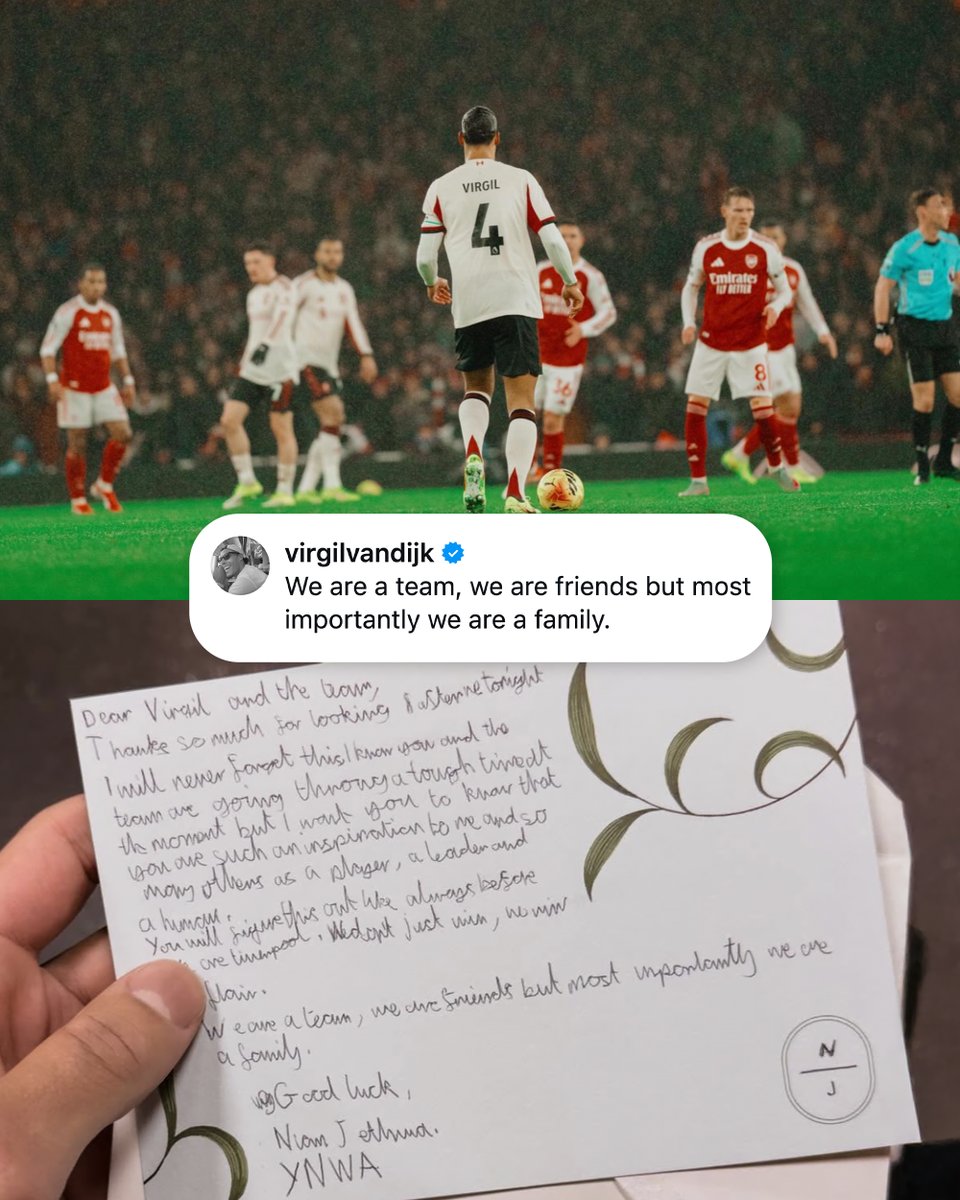 VIRGIL
4
Emirates
FLY BETTER
8
36
virgilvandijk
We are a team, we are friends but most
importantly we are a family.
Dear Virgil and the team,
Thanks so much for looking after me tonight
I will never forget this I know you and the
team are going through a tough time at
the moment but I want you to know that
you are such an inspiration to me and so
many others as a player, a leader and
a human.
You will figure this out like always before
are Liverpool. We dont just win, we win
flair.
We are a team, we are friends but most importantly we are
a family.
Good luck,
Niam Jethwa.
YNWA
N
J